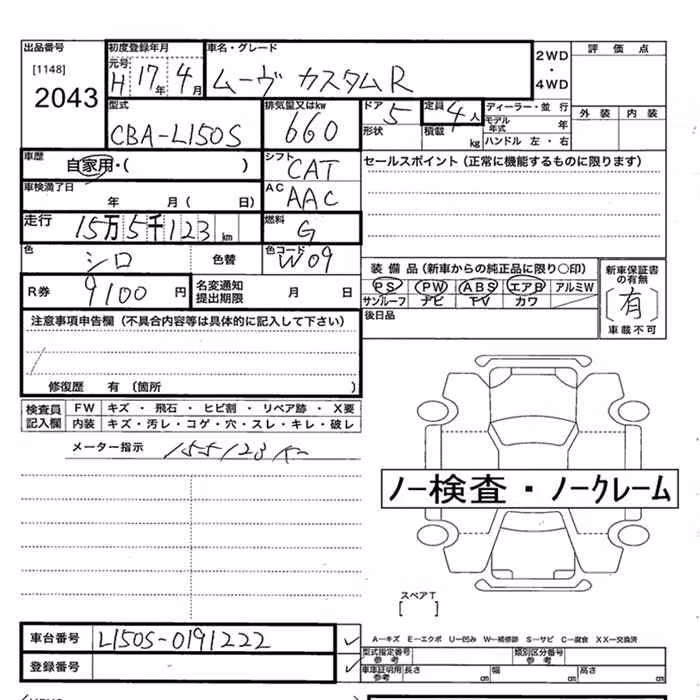 出品番号 初度登録年月 車名・グレード 評価点
[1148] 元号 2WD
2043 H 17年 4月 ムーヴ カスタムR ・
4WD
型式 排気量又はkw ドア 定員 ディーラー・並行 外装 内装
CBA-L150S 660 5 4人 モデル年式 年
形状 積載 kg ハンドル 左・右
車歴 シフト セールスポイント (正常に機能するものに限ります)
自家用・( ) CAT
車検満了日 AC
年 月( 日) AAC
走行 15万5千123km 燃料 G
色 シロ 色替 色コード W09
装備品 (新車からの純正品に限り○印) 新車保証書の有無
R券 9100円 名変通知提出期限 月 日 PS PW ABS エアB アルミW 〔有〕
サンルーフ ナビ TV カワ 車載不可
注意事項申告欄 (不具合内容等は具体的に記入して下さい) 後日品
修復歴 有 (箇所 )
検査員記入欄 FW キズ・飛石・ヒビ割・リペア跡・X要
内装 キズ・汚レ・コゲ・穴・スレ・キレ・破レ
メーター指示 155123 km
ノー検査・ノークレーム
スペアT
[ ]
車台番号 L150S-0191222 A—キズ E—エクボ U—凹み W—補修跡 S—サビ C—腐食 XX—交換済
型式指定番号 参考 類別区分番号 参考
登録番号 車庫証明用 参考 長さ cm 幅 cm 高さ cm